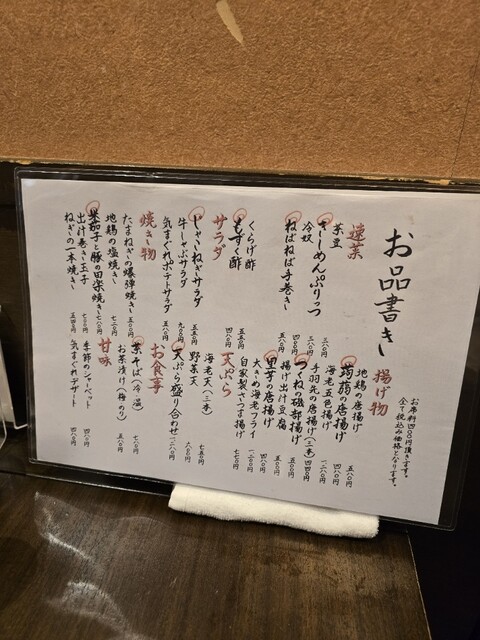 お品書き
お席料四〇〇円頂きます。
全て税込み価格となります。
速菜
茶豆 三八〇円
さしめんぷりっつ 三八〇円
冷奴
ねばねば手巻き 五四〇円
くらげ酢 四八〇円
もずく酢 五五〇円
サラダ
じゃこねぎサラダ
牛しゃぶサラダ 九〇〇円
気まぐれポテトサラダ 五八〇円
焼き物
たまねぎの爆弾焼き 五〇〇円
地鶏の塩焼き 七二〇円
茄子と豚の田楽焼き 七八〇円
出汁巻き玉子 七〇〇円
ねぎの一本焼き 五四〇円
揚げ物
地鶏の唐揚げ 五八〇円
蒟蒻の唐揚げ 四八〇円
海老五色揚げ 一二〇〇円
手羽先の唐揚げ(三本) 四四〇円
つくねの磯部揚げ 四四〇円
揚げ出汁豆腐 五〇〇円
里芋の唐揚げ 四八〇円
大きめ海老フライ 一二〇〇円
自家製さつま揚げ 七七〇円
天ぷら
海老天(三本) 七五〇円
野菜天 六八〇円
天ぷら盛り合わせ 一二八〇円
お食事
茶そば(冷・温) 七八〇円
お茶漬け(梅・のり) 五八〇円
甘味
季節のシャーベット 四八〇円
気まぐれデザート 四八〇円